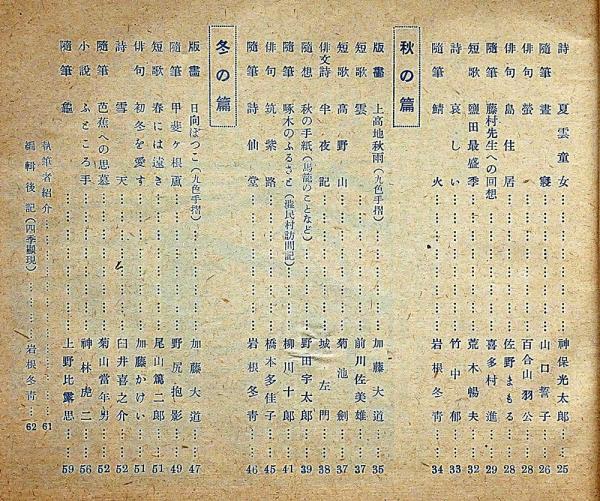 詩 夏雲童女 神保光太郎 25
隨筆 晝寢 山口誓子 26
俳句 螢 百合山羽公 28
俳句 島住居 佐野まもる 28
隨筆 藤村先生への回想 喜多村進 29
短歌 鹽田最盛季 荒木暢夫 32
詩 哀しい 竹中郁 33
隨筆 鯖火 岩根冬青 34
秋の篇
版畫 上高地秋雨(九色手摺) 加藤大道 35
短歌 雲 前川佐美雄 37
短歌 高野山 菊池劍 37
俳文詩 半夜記 城左門 38
隨想 秋の手紙(馬籠のことなど) 野田宇太郎 39
隨筆 啄木のふるさと(澁民村訪問記) 柳川十郎 41
俳句 筑紫路 橋本多佳子 45
隨筆 詩仙堂 岩根冬青 46
冬の篇
版畫 日向ぼつこ(九色手摺) 加藤大道 47
隨筆 甲斐ヶ根颪 野尻抱影 49
短歌 春には遠き 尾山篤二郎 51
俳句 初冬を愛す 加藤かけい 51
詩 雪天 臼井喜之介 52
隨筆 芭蕉への思慕 菊山當年男 52
小說 ふところ手 神林虎二 56
隨筆 龜 上野比露思 59
執筆者紹介 61
編輯後記(四季顯現) 岩根冬青 62